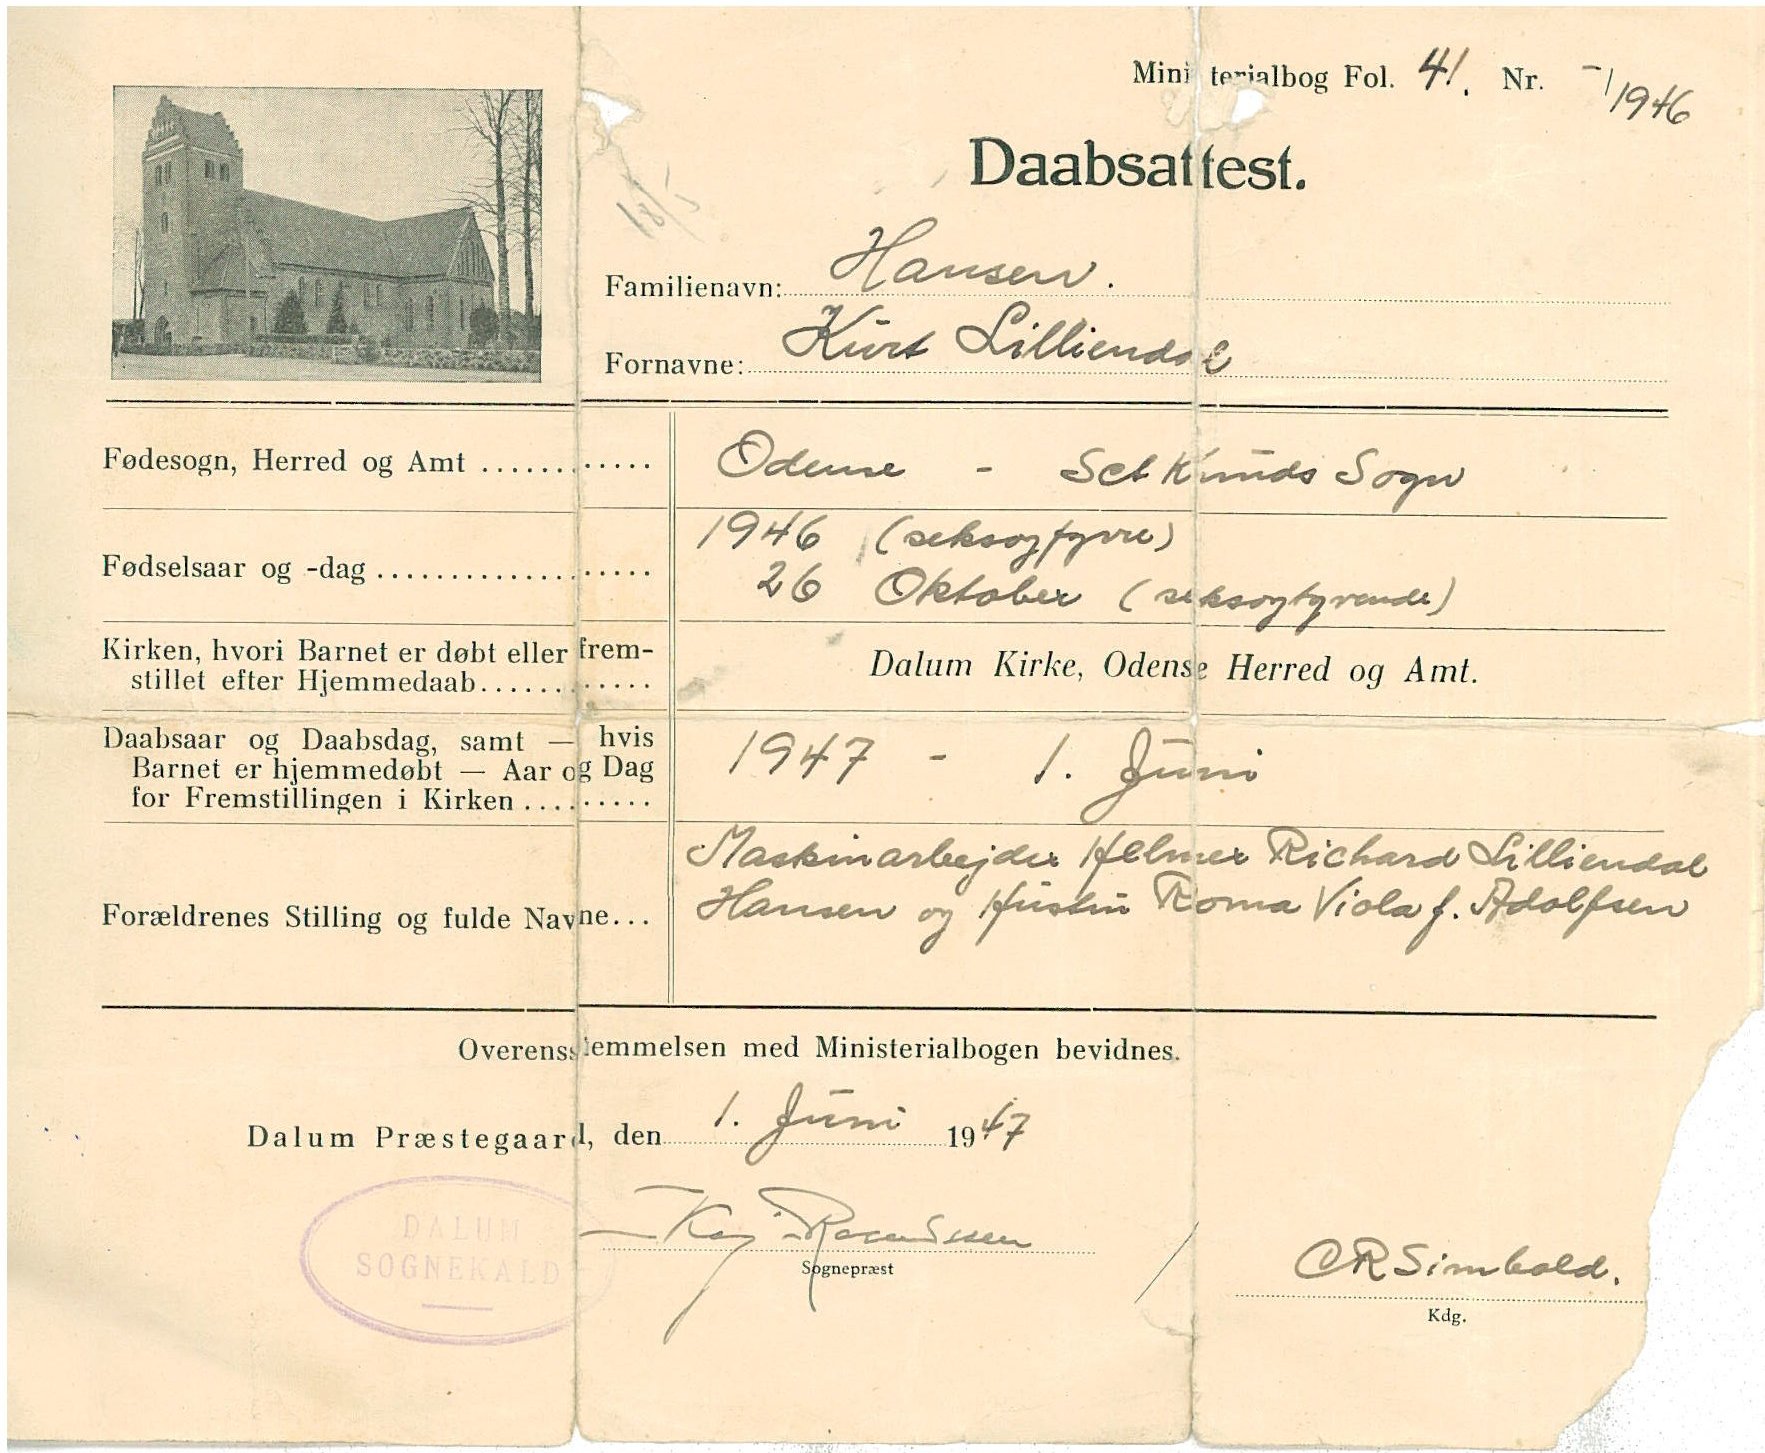 Ministerialbog Fol. 41. Nr. -/1946
Daabsattest.
18/5
Familienavn: Hansen.
Fornavne: Kurt Lilliendal
Fødesogn, Herred og Amt ............ Odense - Sct Knuds Sogn
Fødselsaar og -dag .................... 1946 (seksogfyrre)
26 Oktober (seksogtyvende)
Kirken, hvori Barnet er døbt eller frem-
stillet efter Hjemmedaab............ Dalum Kirke, Odense Herred og Amt.
Daabsaar og Daabsdag, samt — hvis
Barnet er hjemmedøbt — Aar og Dag
for Fremstillingen i Kirken ......... 1947 - 1. Juni
Maskinarbejder Helmer Richard Lilliendal
Forældrenes Stilling og fulde Navne... Hansen og Hustru Roma Viola f. Adolfsen
Overensstemmelsen med Ministerialbogen bevidnes.
Dalum Præstegaard, den 1. Juni 1947
DALUM
SOGNEKALD
Kaj Rasmussen
Sognepræst
CR Simbold.
Kdg.